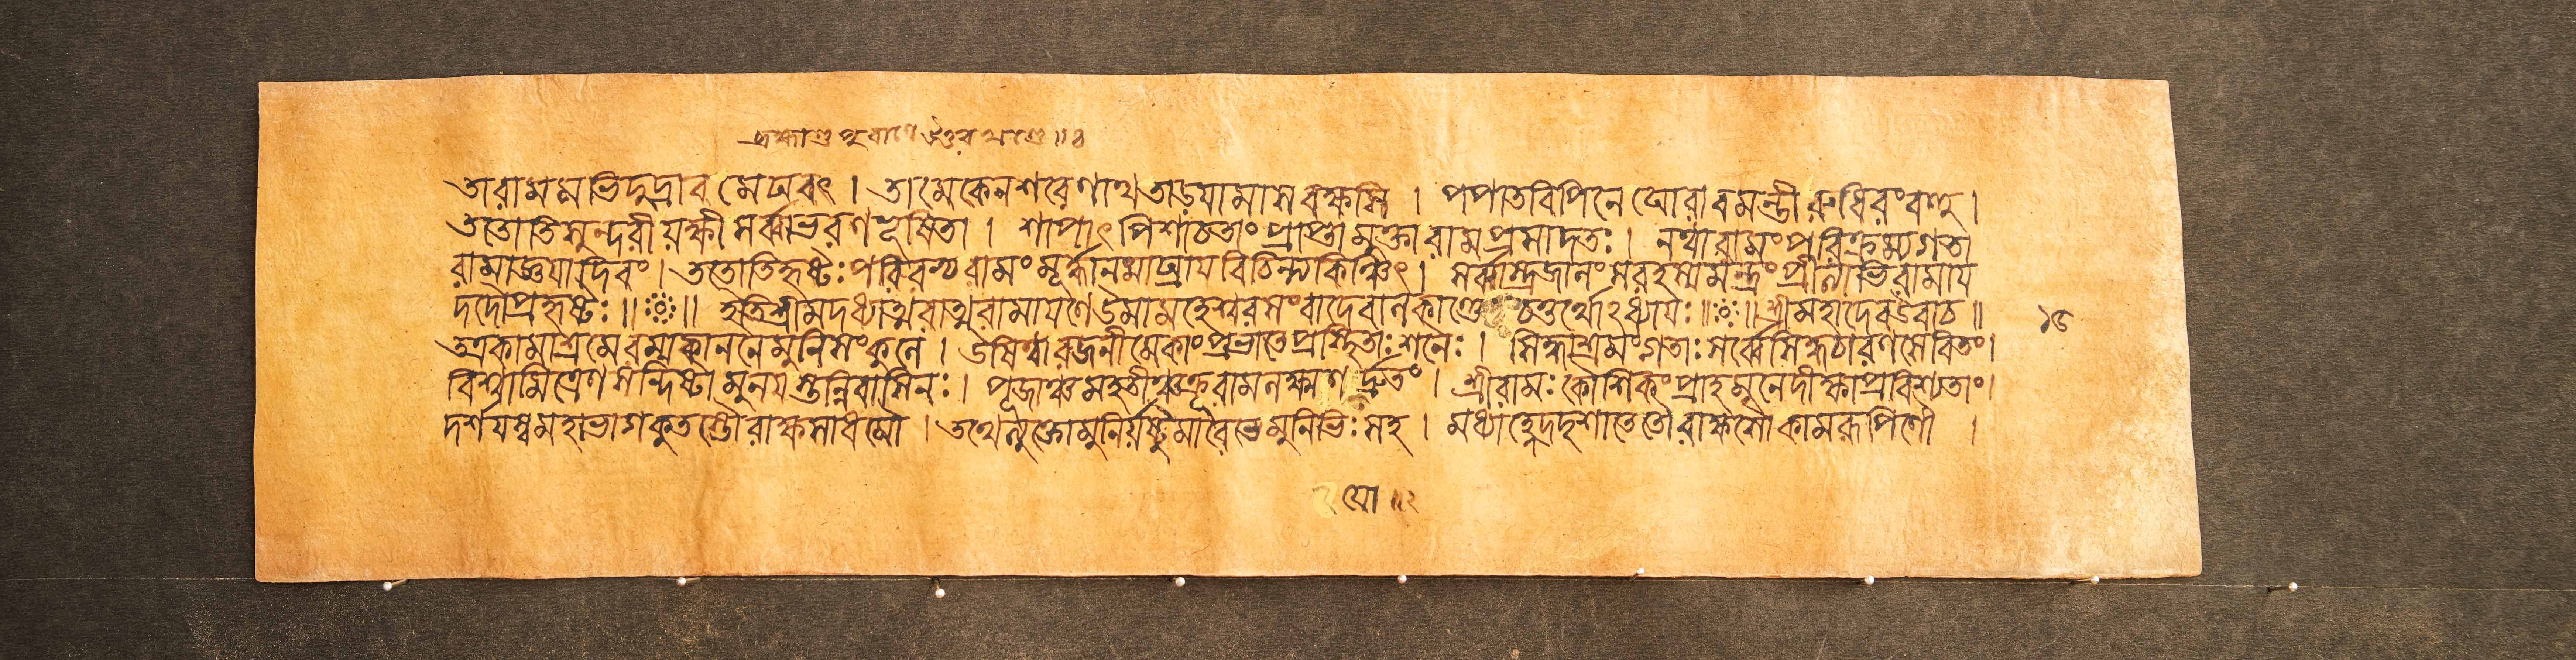 ব্রহ্মাণ্ড পুরাণে উত্তর খণ্ডে ॥ ৪
তারামমভিদুদ্রাব মেঘবৎ । তামেকেনশরেণাশু তাড়য়ামাস বক্ষসি । পপাতবিপিনে ঘোরাবমন্তী রুধিরংবহু ।
ততোতিসুন্দরী যক্ষী সর্ব্বাভরণভূষিতা । শাপাৎ পিশাচতাং প্রাপ্তা মুক্তা রামপ্রসাদতঃ । নত্বারামং পরিক্রম্যগতা
রামাজ্ঞয়াদিবং । ততোতিহৃষ্টঃ পরিরভ্য রামং মূর্দ্ধানমাঘ্রায় বিচিন্ত্যকিঞ্চিৎ । সর্ব্বাস্ত্রজালং সরহস্যমন্ত্রং প্রীত্যাভিরামায়
দদৌপ্রহৃষ্টঃ ॥ ॥ ইতিশ্রীমদধ্যাত্মরামায়ণে উমামহেশ্বরসংবাদেবালকাণ্ডে চতুর্থোঽধ্যায়ঃ ॥ ॥ শ্রীমহাদেব উবাচ ॥
তত্রকামাশ্রমেরম্যেকাননেমুনিসংকুলে । উষিত্বা রজনীমেকাংপ্রভাতেপ্রস্থিতাঃ শনৈঃ । সিদ্ধাশ্রমংগতাঃ সর্ব্বেসিদ্ধচারণসেবিতং ।
বিশ্বামিত্রেণ সন্দিষ্টা মুনয়স্তন্নিবাসিনঃ । পূজাঞ্চমহতীঞ্চক্রূরামলক্ষ্মণর্দ্রুতং । শ্রীরামঃ কৌশিকংপ্রাহমুনেদীক্ষাপ্রবিশ্যতাং ।
দর্শয়স্বমহাভাগকুতস্তৌরাক্ষসাধমৌ । তথেত্যুক্তোমুনির্য্যষ্টুমারেভেমুনিভিঃ সহ । মধ্যাহ্নেদদৃশাতেতৌরাক্ষসৌকামরূপিণৌ ।
১৫
য়ো ॥ ২